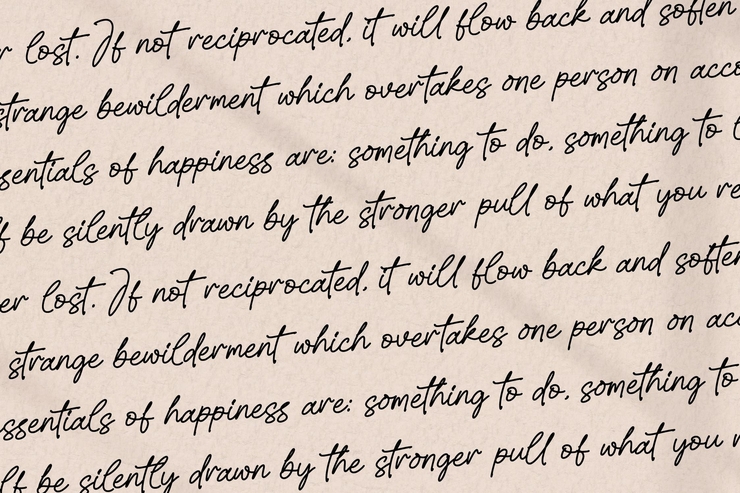 r lost. If not reciprocated, it will flow back and soften
strange bewilderment which overtakes one person on acco
sentials of happiness are: something to do, something to l
f be silently drawn by the stronger pull of what you re
er lost. If not reciprocated, it will flow back and soften
strange bewilderment which overtakes one person on acc
essentials of happiness are: something to do, something to
lf be silently drawn by the stronger pull of what you r